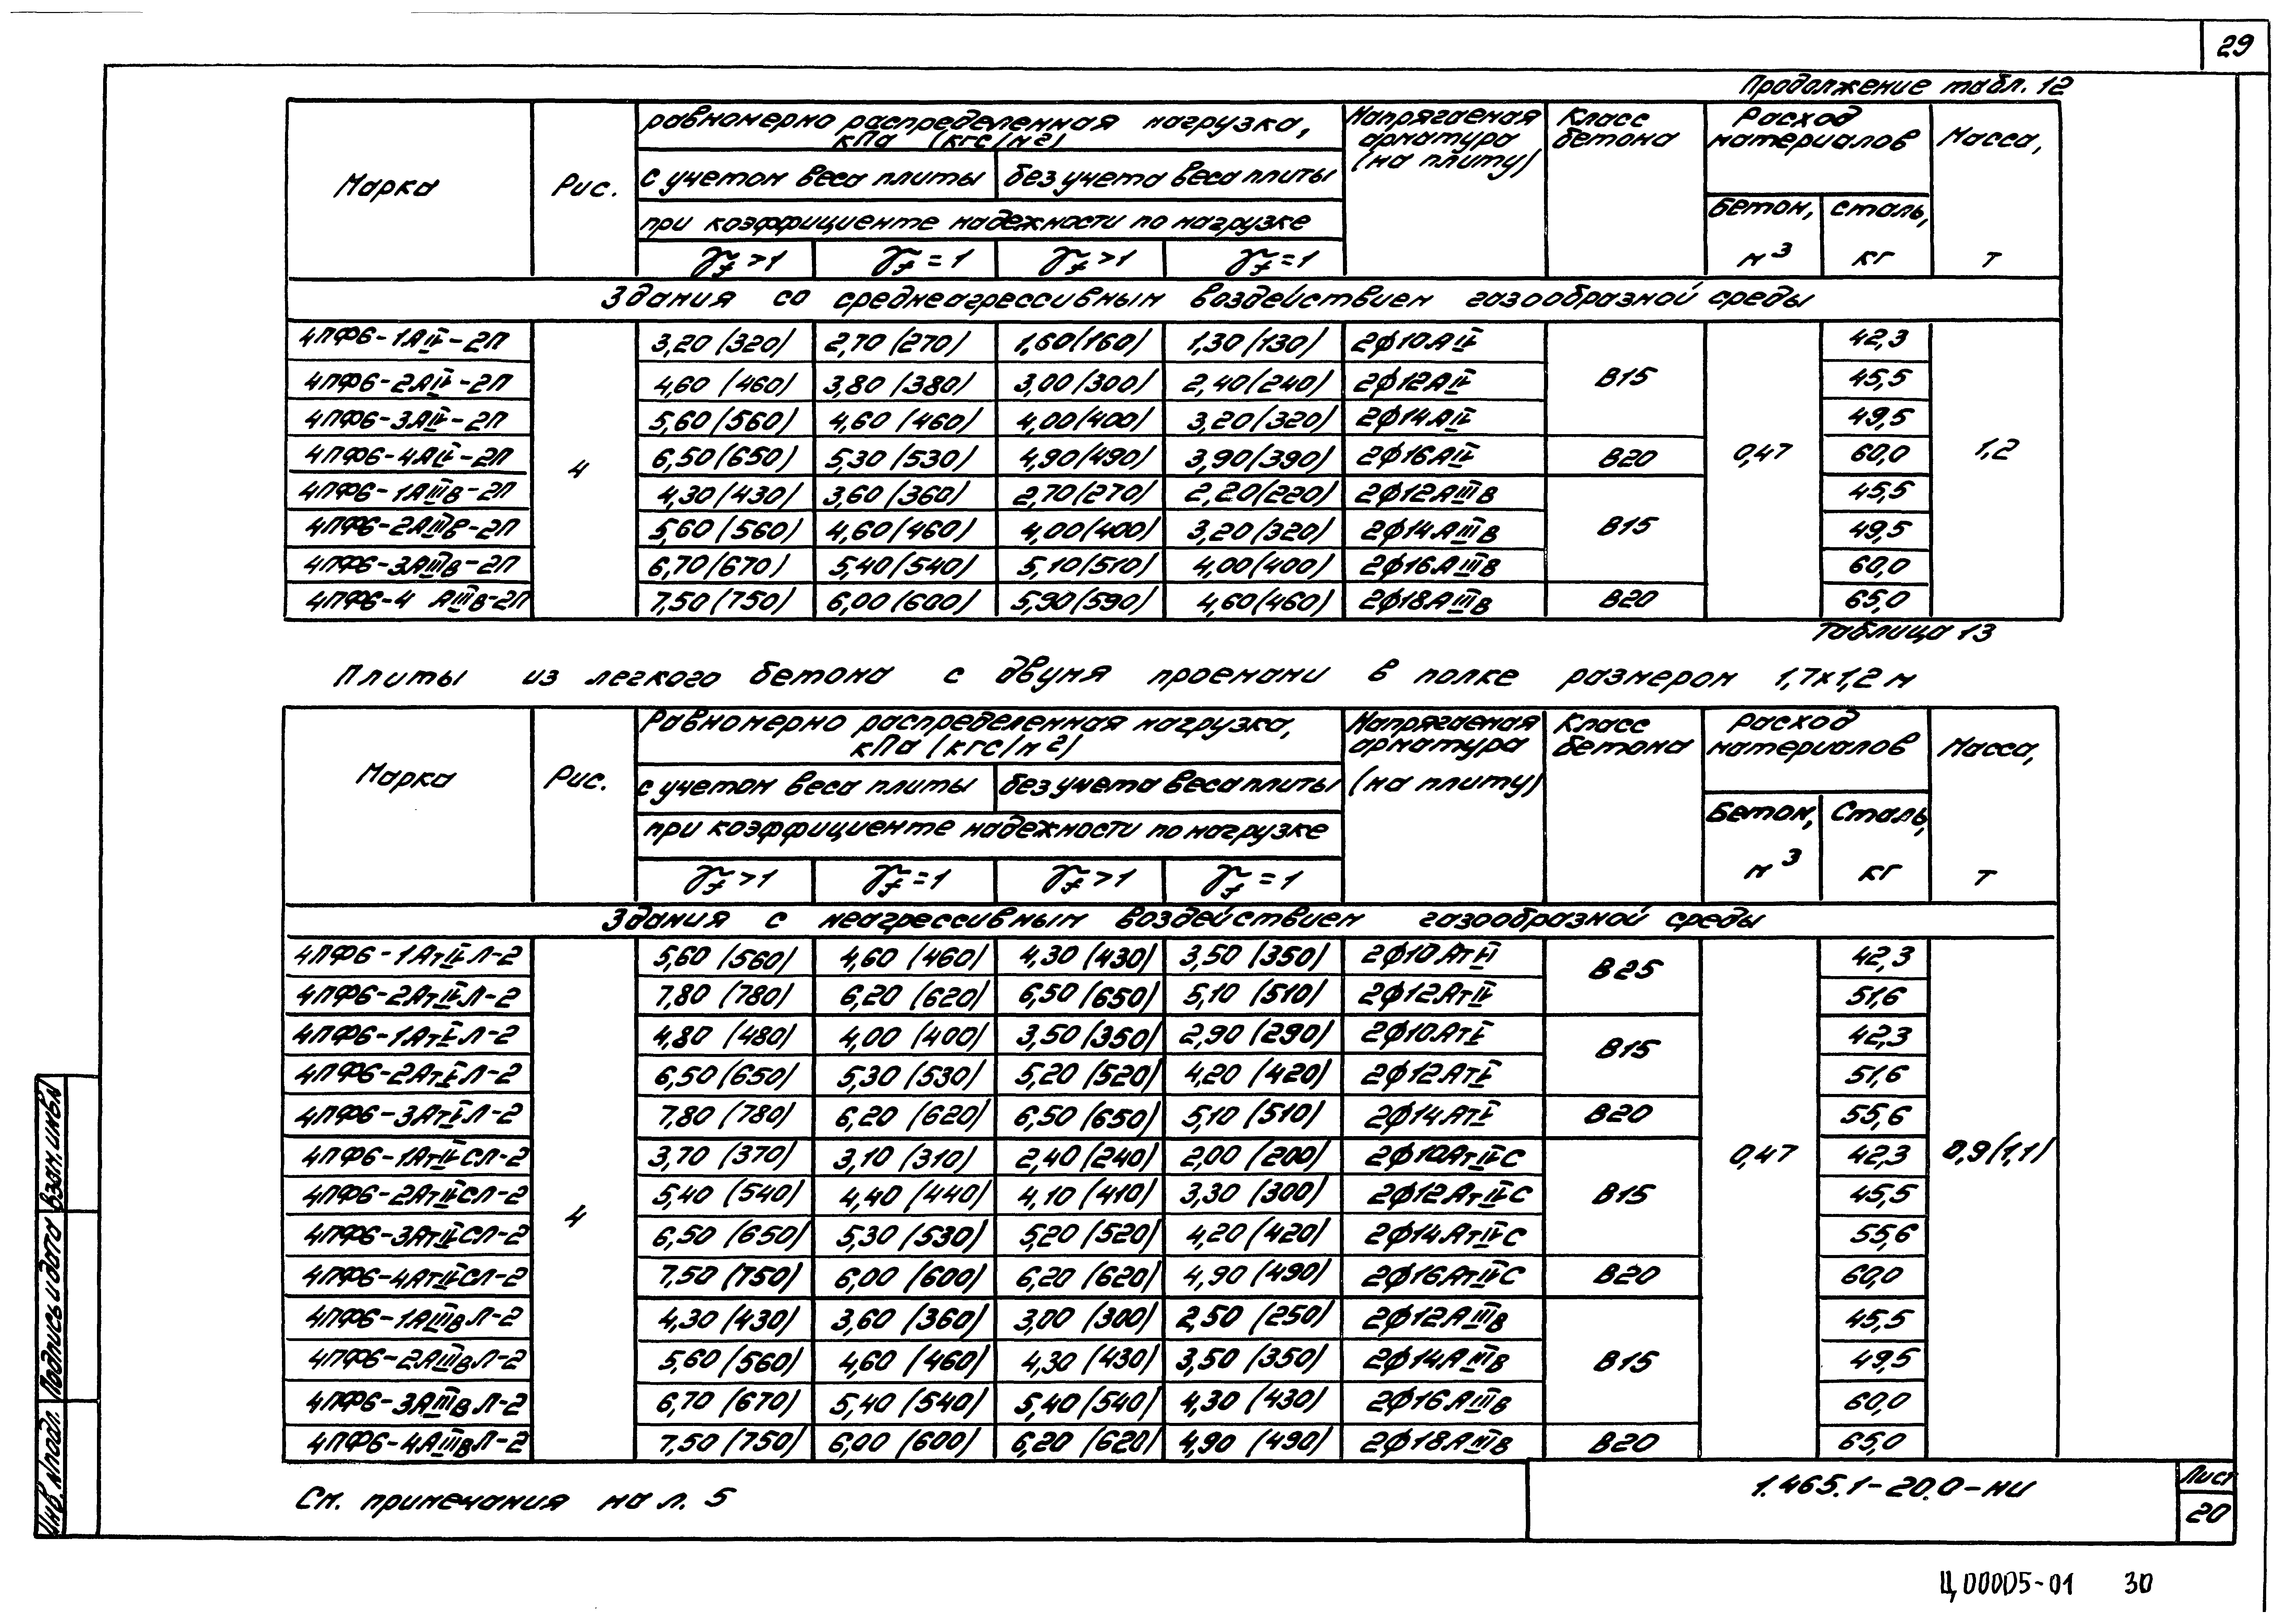 29
Продолжение табл. 12
Марка
Рис.
равномерно распределенная нагрузка, кПа (кгс/м²)
с учетом веса плиты | без учета веса плиты
при коэффициенте надежности по нагрузке
γf >1 | γf =1 | γf >1 | γf =1
Напрягаемая арматура (на плиту)
Класс бетона
Расход материалов
Бетон, м³ | сталь, кг
Масса, т
Здания со среднеагрессивным воздействием газообразной среды
4ПФ6-1АIV-2П | 4 | 3,20 (320) | 2,70 (270) | 1,60 (160) | 1,30 (130) | 2ф10АIV | В15 | 0,47 | 42,3 | 1,2
4ПФ6-2АIV-2П | 4,60 (460) | 3,80 (380) | 3,00 (300) | 2,40 (240) | 2ф12АIV | 45,5
4ПФ6-3АIV-2П | 5,60 (560) | 4,60 (460) | 4,00 (400) | 3,20 (320) | 2ф14АIV | 49,5
4ПФ6-4АIV-2П | 6,50 (650) | 5,30 (530) | 4,90 (490) | 3,90 (390) | 2ф16АIV | В20 | 60,0
4ПФ6-1АIIIв-2П | 4,30 (430) | 3,60 (360) | 2,70 (270) | 2,20 (220) | 2ф12АIIIв | В15 | 45,5
4ПФ6-2АIIIв-2П | 5,60 (560) | 4,60 (460) | 4,00 (400) | 3,20 (320) | 2ф14АIIIв | 49,5
4ПФ6-3АIIIв-2П | 6,70 (670) | 5,40 (540) | 5,10 (510) | 4,00 (400) | 2ф16АIIIв | 60,0
4ПФ6-4 АIIIв-2П | 7,50 (750) | 6,00 (600) | 5,90 (590) | 4,60 (460) | 2ф18АIIIв | В20 | 65,0
Таблица 13
Плиты из легкого бетона с двумя проемами в полке размером 1,7х1,2 м
Марка
Рис.
Равномерно распределенная нагрузка, кПа (кгс/м²)
с учетом веса плиты | без учета веса плиты
при коэффициенте надежности по нагрузке
γf >1 | γf =1 | γf >1 | γf =1
Напрягаемая арматура (на плиту)
Класс бетона
Расход материалов
Бетон, м³ | Сталь, кг
Масса, т
Здания с неагрессивным воздействием газообразной среды
4ПФ6-1АтVIЛ-2 | 4 | 5,60 (560) | 4,60 (460) | 4,30 (430) | 3,50 (350) | 2ф10АтVI | В25 | 0,47 | 42,3 | 0,9(1,1)
4ПФ6-2АтVIЛ-2 | 7,80 (780) | 6,20 (620) | 6,50 (650) | 5,10 (510) | 2ф12АтVI | 51,6
4ПФ6-1АтVЛ-2 | 4,80 (480) | 4,00 (400) | 3,50 (350) | 2,90 (290) | 2ф10АтV | В15 | 42,3
4ПФ6-2АтVЛ-2 | 6,50 (650) | 5,30 (530) | 5,20 (520) | 4,20 (420) | 2ф12АтV | 51,6
4ПФ6-3АтVЛ-2 | 7,80 (780) | 6,20 (620) | 6,50 (650) | 5,10 (510) | 2ф14АтV | В20 | 55,6
4ПФ6-1АтIVСЛ-2 | 3,70 (370) | 3,10 (310) | 2,40 (240) | 2,00 (200) | 2ф10АтIVС | В15 | 42,3
4ПФ6-2АтIVСЛ-2 | 5,40 (540) | 4,40 (440) | 4,10 (410) | 3,30 (300) | 2ф12АтIVС | 45,5
4ПФ6-3АтIVСЛ-2 | 6,50 (650) | 5,30 (530) | 5,20 (520) | 4,20 (420) | 2ф14АтIVС | 55,6
4ПФ6-4АтIVСЛ-2 | 7,50 (750) | 6,00 (600) | 6,20 (620) | 4,90 (490) | 2ф16АтIVС | В20 | 60,0
4ПФ6-1АIIIвЛ-2 | 4,30 (430) | 3,60 (360) | 3,00 (300) | 2,50 (250) | 2ф12АIIIв | В15 | 45,5
4ПФ6-2АIIIвЛ-2 | 5,60 (560) | 4,60 (460) | 4,30 (430) | 3,50 (350) | 2ф14АIIIв | 49,5
4ПФ6-3АIIIвЛ-2 | 6,70 (670) | 5,40 (540) | 5,40 (540) | 4,30 (430) | 2ф16АIIIв | 60,0
4ПФ6-4АIIIвЛ-2 | 7,50 (750) | 6,00 (600) | 6,20 (620) | 4,90 (490) | 2ф18АIIIв | В20 | 65,0
См. примечания на л. 5
1.465.1-20.0-НИ
Лист
20
Инв. №подл. Подпись и дата Взам. инв№
Ц00005-01 30